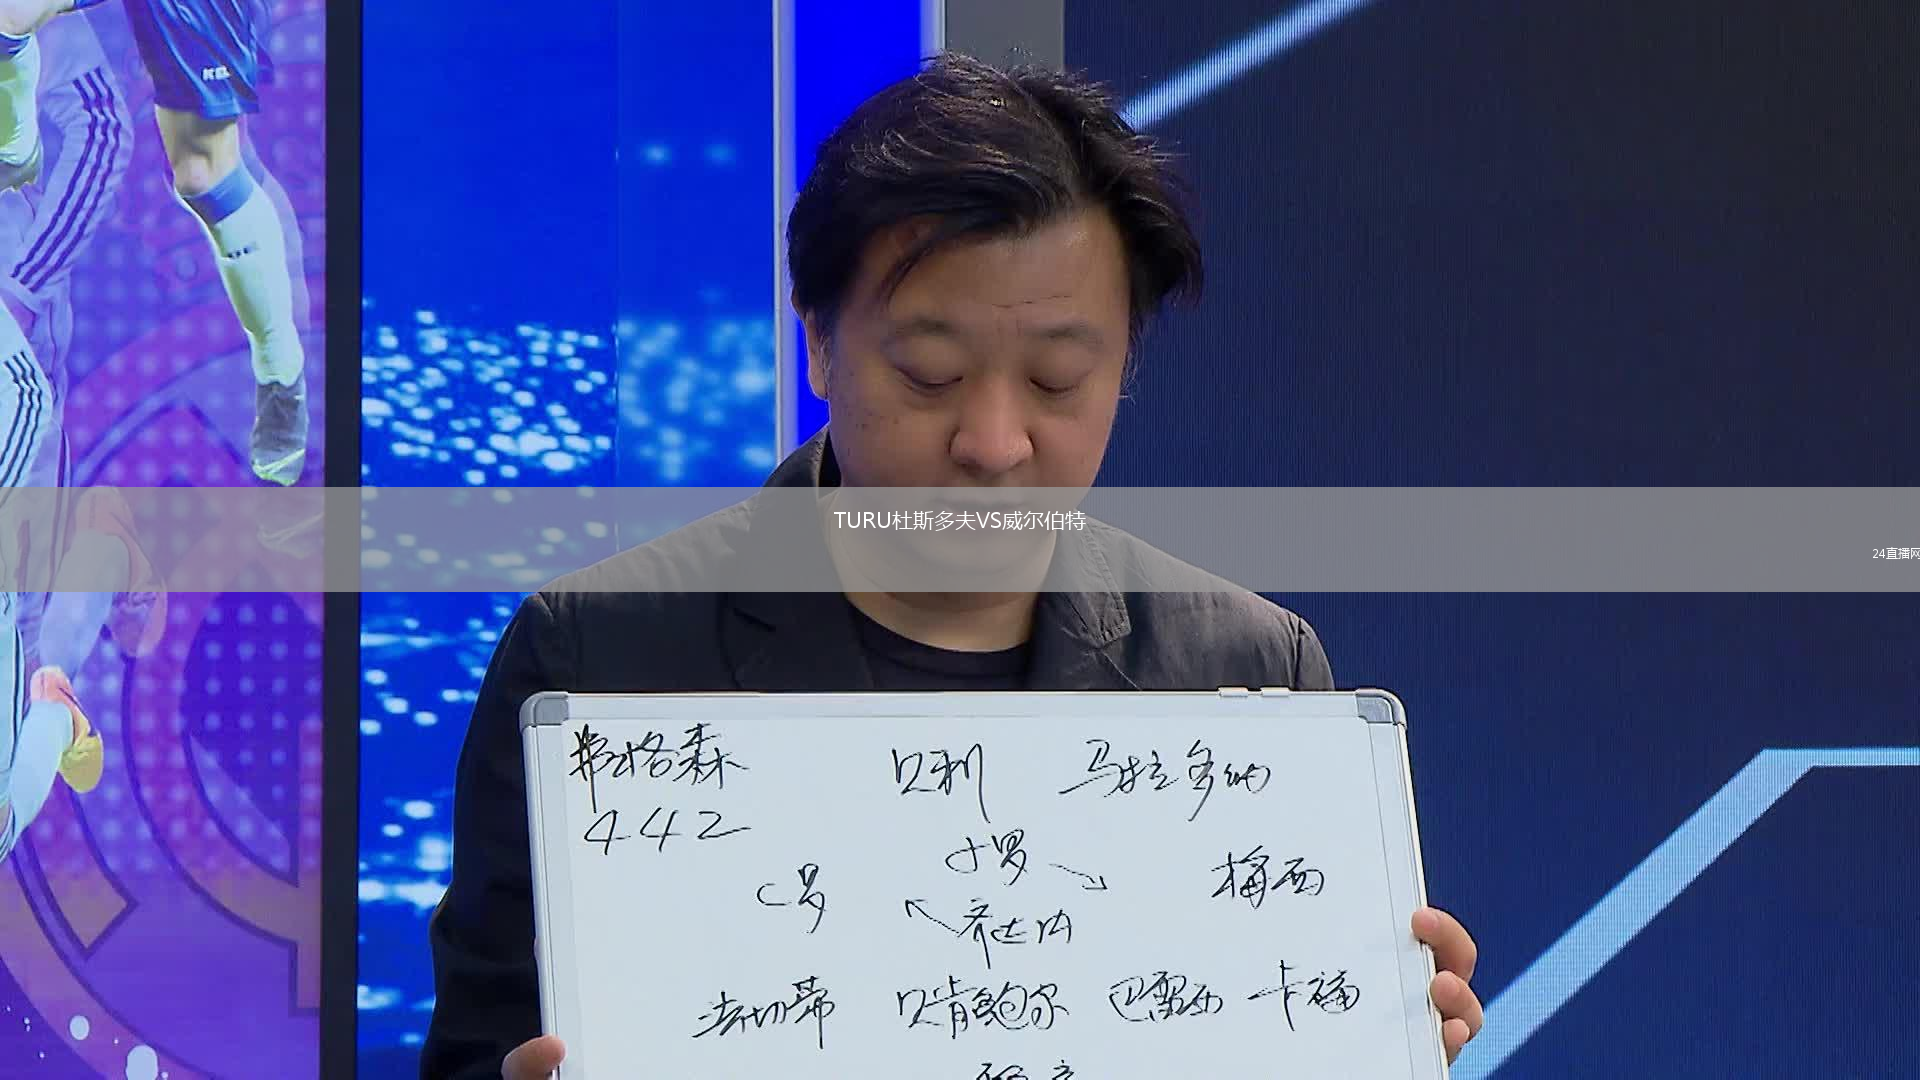 TURU杜斯多夫VS威尔伯特
24直播网
弗格森 贝利 马拉多纳
442
小罗
C罗 梅西
齐达内
法切蒂 贝肯鲍尔 巴雷西 卡福